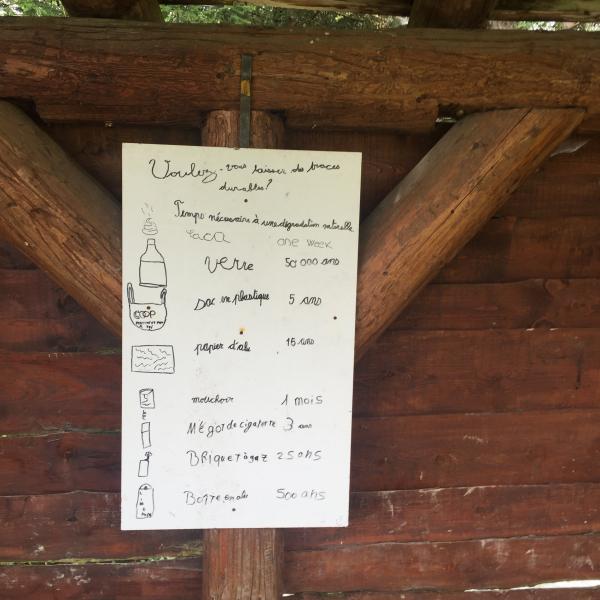 Voulez-vous laisser des traces
durables?
Temps nécessaire à une dégradation naturelle
caca one week
verre 50 000 ans
COOP
sac en plastique 5 ans
papier d'alu 15 ans
mouchoir 1 mois
Mégot de cigarette 3 ans
BRIQUET à gaz 25 ans
Boîte en alu 500 ans